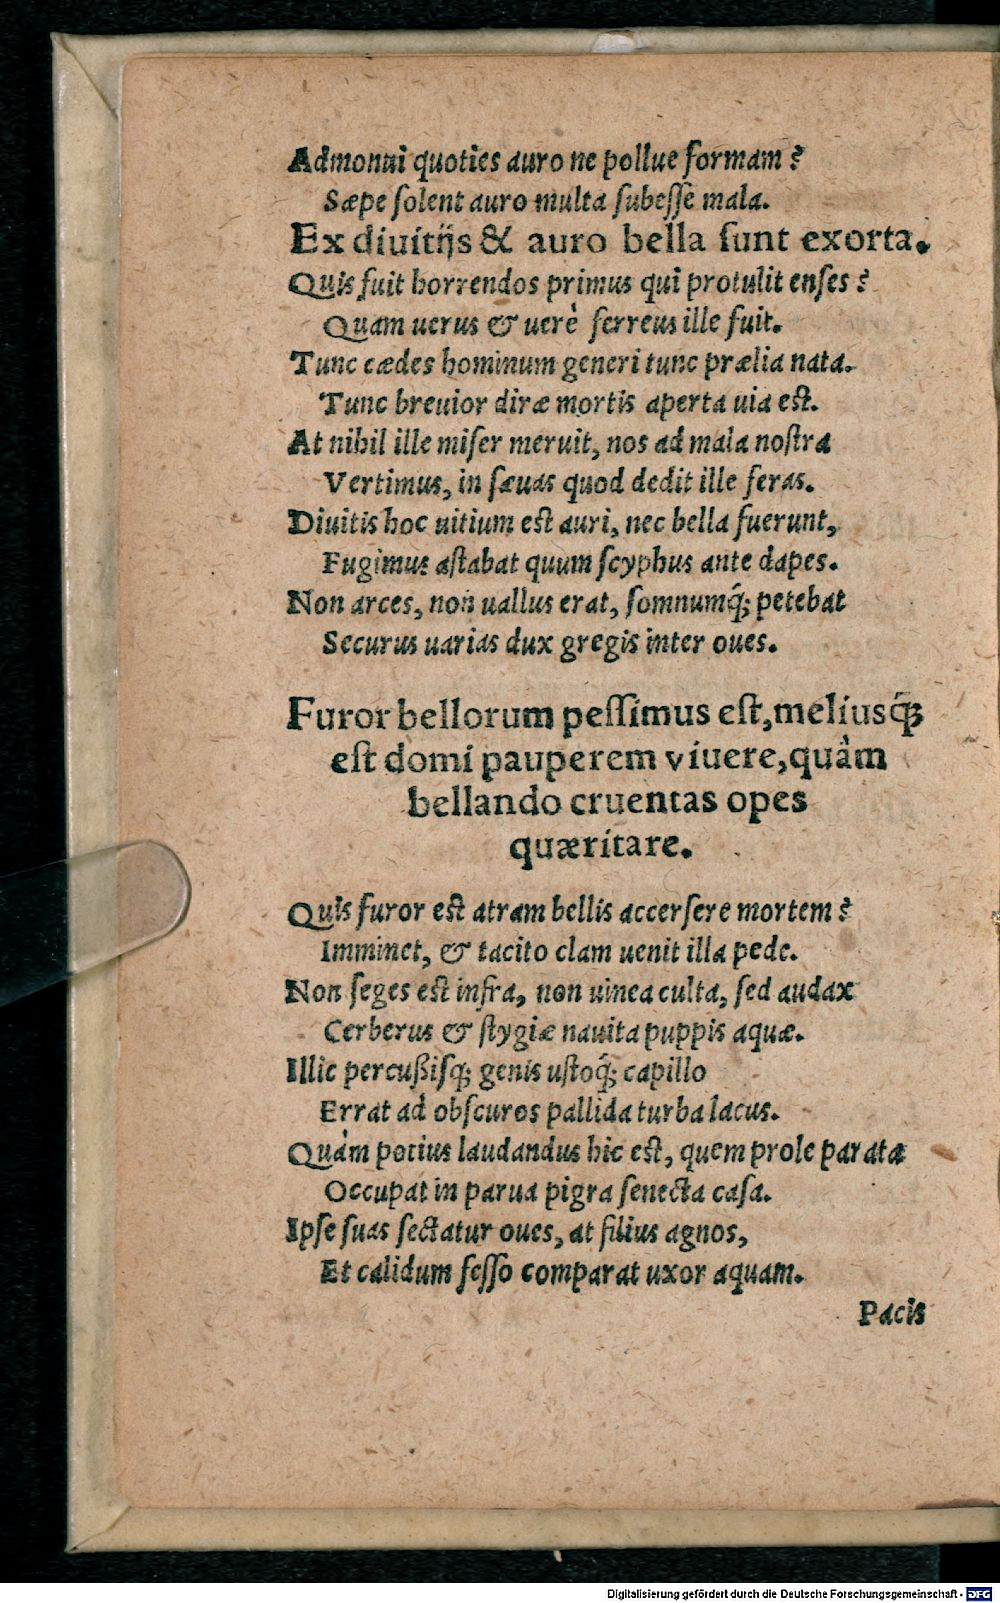 Admonui quoties auro ne pollue formam?
Sæpe ſolent auro multa ſubeſſe mala.
Ex diuitijs & auro bella ſunt exorta.
Quis fuit horrendos primus qui protulit enſes?
Quam uerus & uerè ferreus ille fuit.
Tunc cædes hominum generi tunc prælia nata.
Tunc breuior diræ mortis aperta uia est.
At nihil ille miſer meruit, nos ad mala noſtra
Vertimus, in ſæuas quod dedit ille feras.
Diuitis hoc uitium est auri, nec bella fuerunt,
Fugimus aſtabat quum ſcyphus ante dapes.
Non arces, non uallus erat, ſomnumq́; petebat
Securus uarias dux gregis inter oues.
Furor bellorum peſſimus eſt, meliusq́;
eſt domi pauperem viuere, quàm
bellando cruentas opes
quæritare.
Quis furor est atram bellis accerſere mortem?
Imminet, & tacito clam uenit illa pede.
Non ſeges est infra, non uinea culta, ſed audax
Cerberus & ſtygiæ nauita puppis aquæ.
Illic percußiſq; genis uſtoq́; capillo
Errat ad obſcuros pallida turba lacus.
Quàm potius laudandus hic est, quem prole parata
Occupat in parua pigra ſenecta caſa.
Ipſe ſuas ſectatur oues, at filius agnos,
Et calidum feſſo comparat uxor aquam.
Pacis
Digitalisierung gefördert durch die Deutsche Forschungsgemeinschaft - DFG